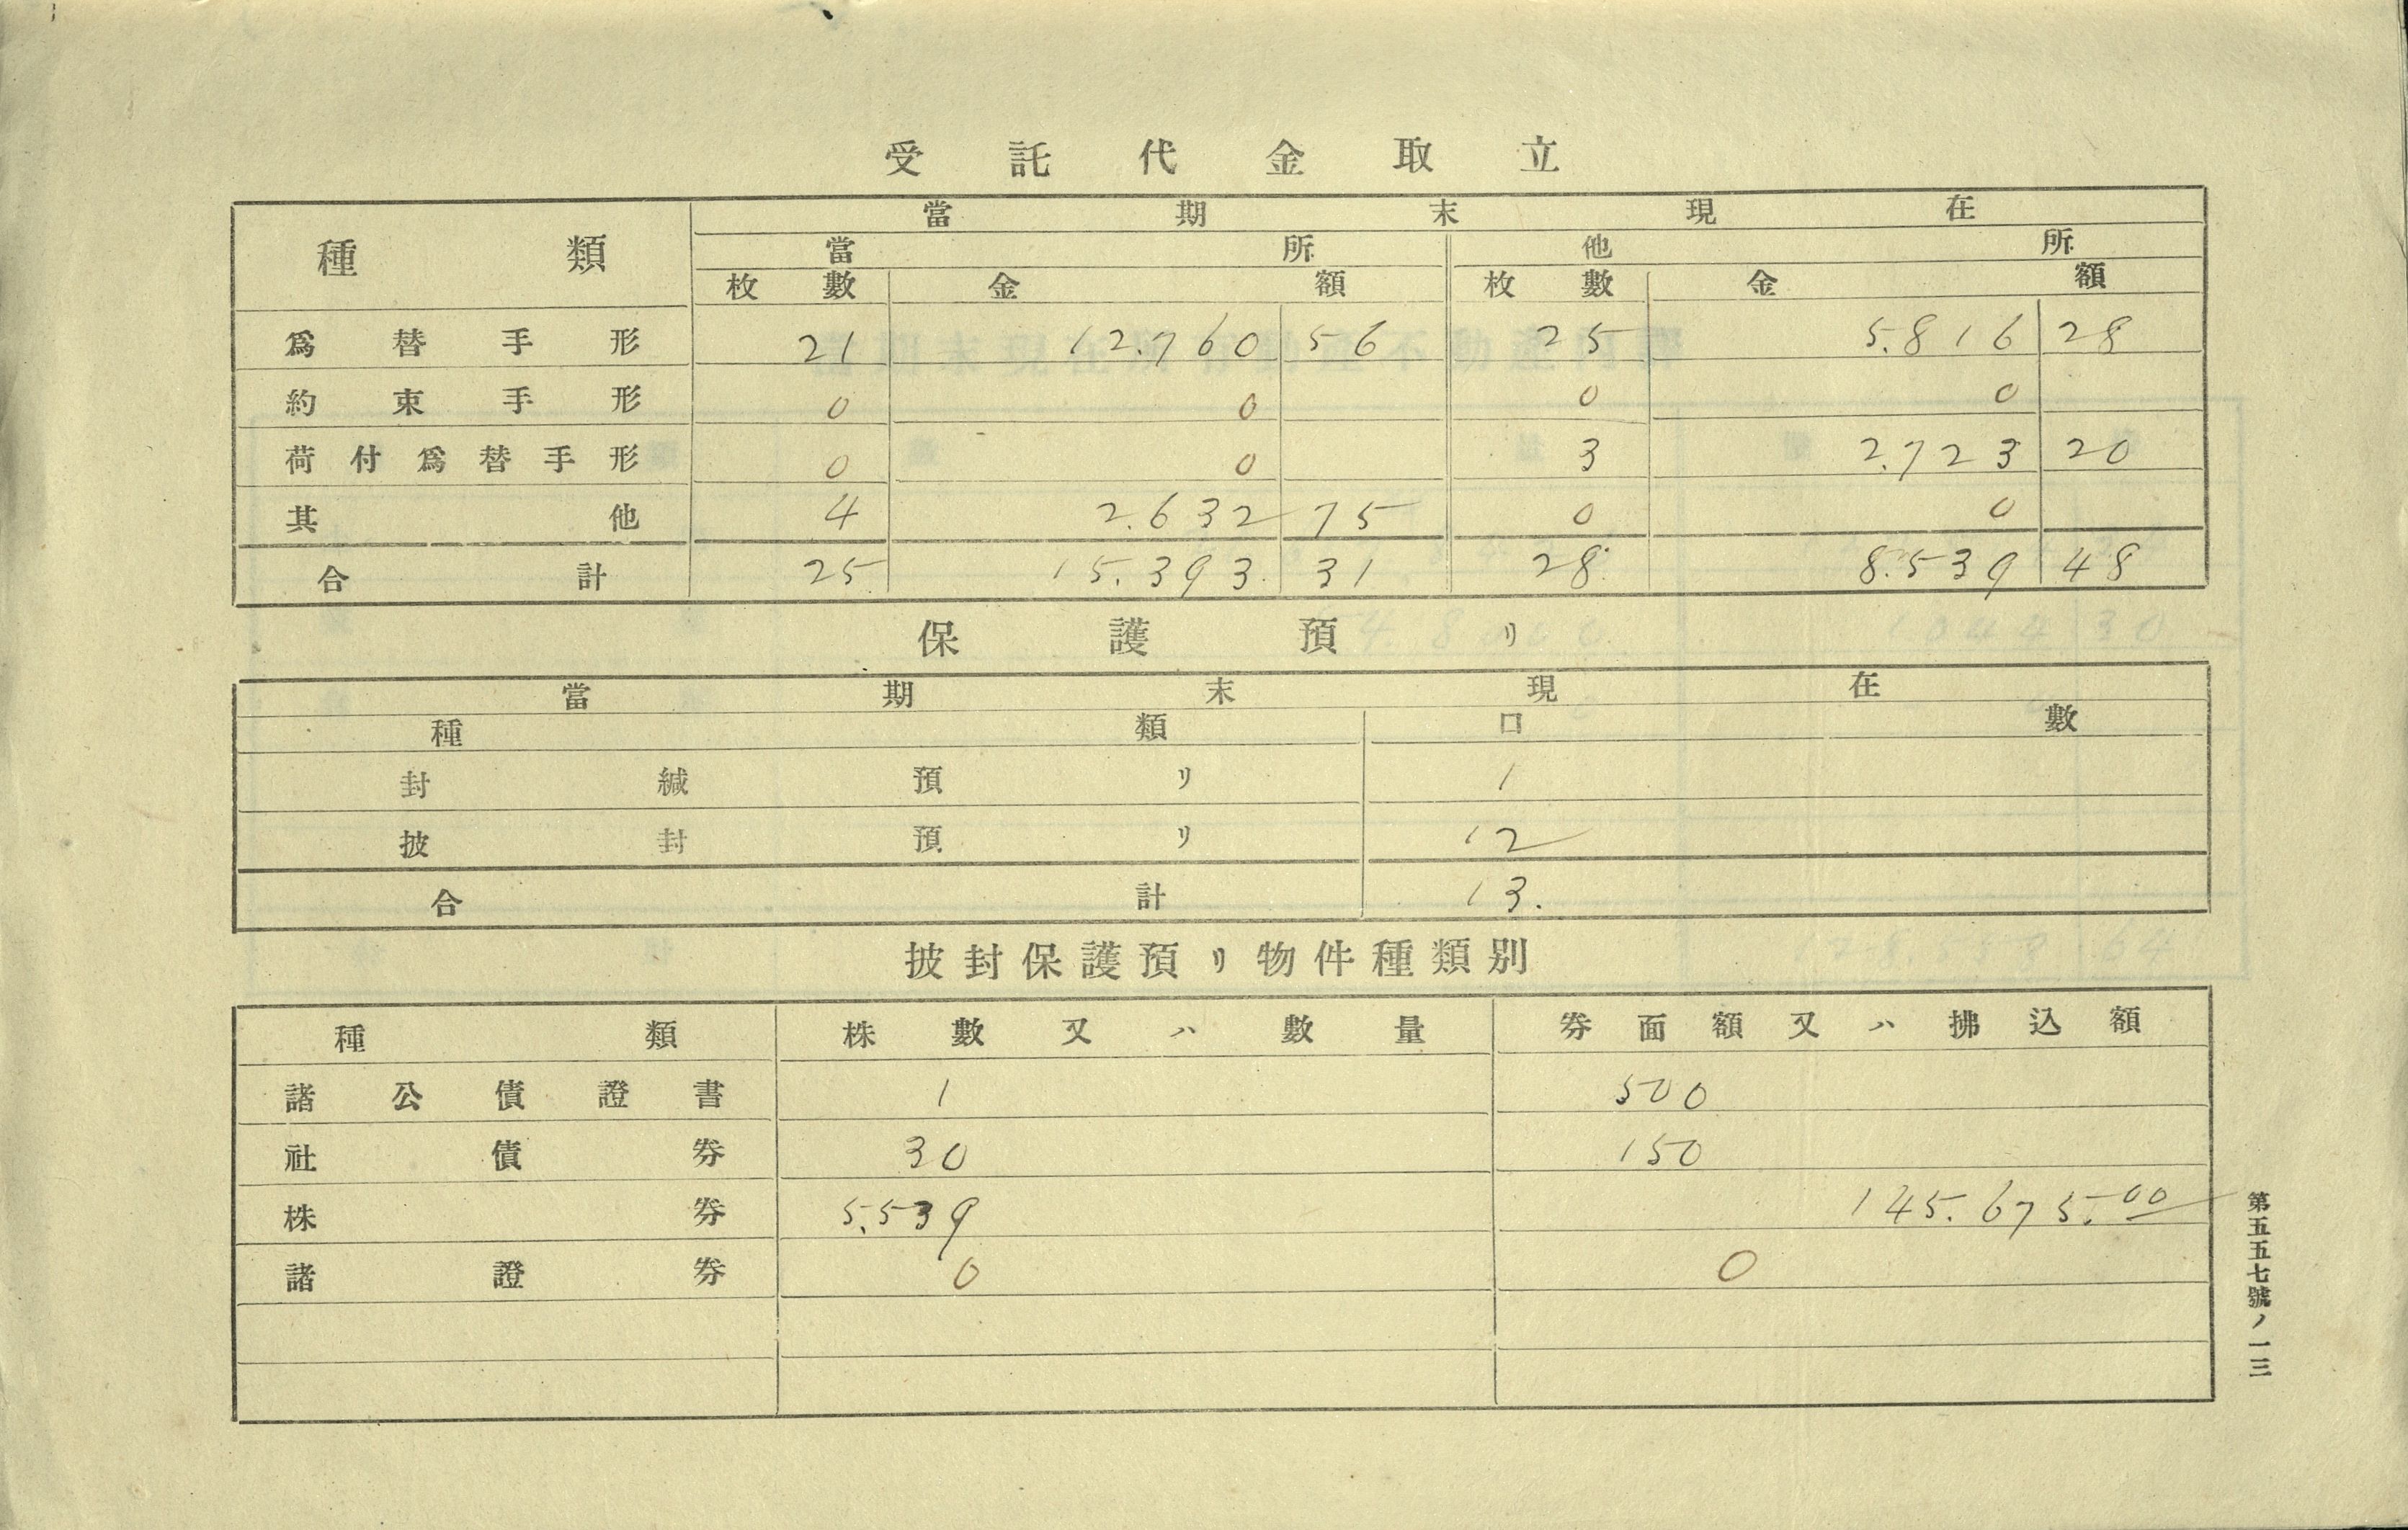 受託代金取立
種類 當期末現在
當所 他所
枚數 金額 枚數 金額
爲替手形 21 12.760 56 25 5.816 28
約束手形 0 0 0 0
荷付爲替手形 0 0 3 2.723 20
其他 4 2.632 75 0 0
合計 25 15.393. 31 28 8.539 48
保護預リ
當期末現在
種類 口數
封緘預リ 1
披封預リ 12
合計 13.
披封保護預リ物件種類別
種類 株數又ハ數量 券面額又ハ拂込額
諸公債證書 1 500
社債券 30 150
株券 5.539 145.675.00
諸證券 0 0
第五五七號ノ一三